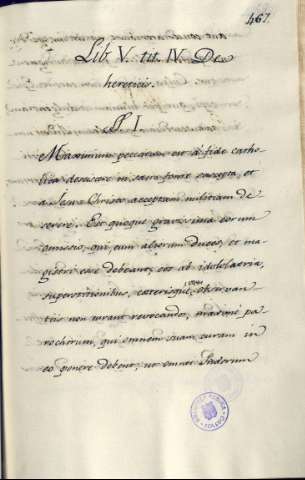 467.
Lib. V. tit. IV. De
hereticis.
§ I
Maximum peccatum est á fide catho
lica desciscere in sacro fonte suscepta, et
a Jesu Christo acceptam militiam de
serere. Est quoque gravissima eorum
omissio, qui cum aliorum duces, et ma
gistri esse debeant, eos ab idololatria,
superstitionibus, ceterisque
non curant revocandos, maxime pa
rochorum, qui omnem suam curam in
eo ponere debent, ut omnes